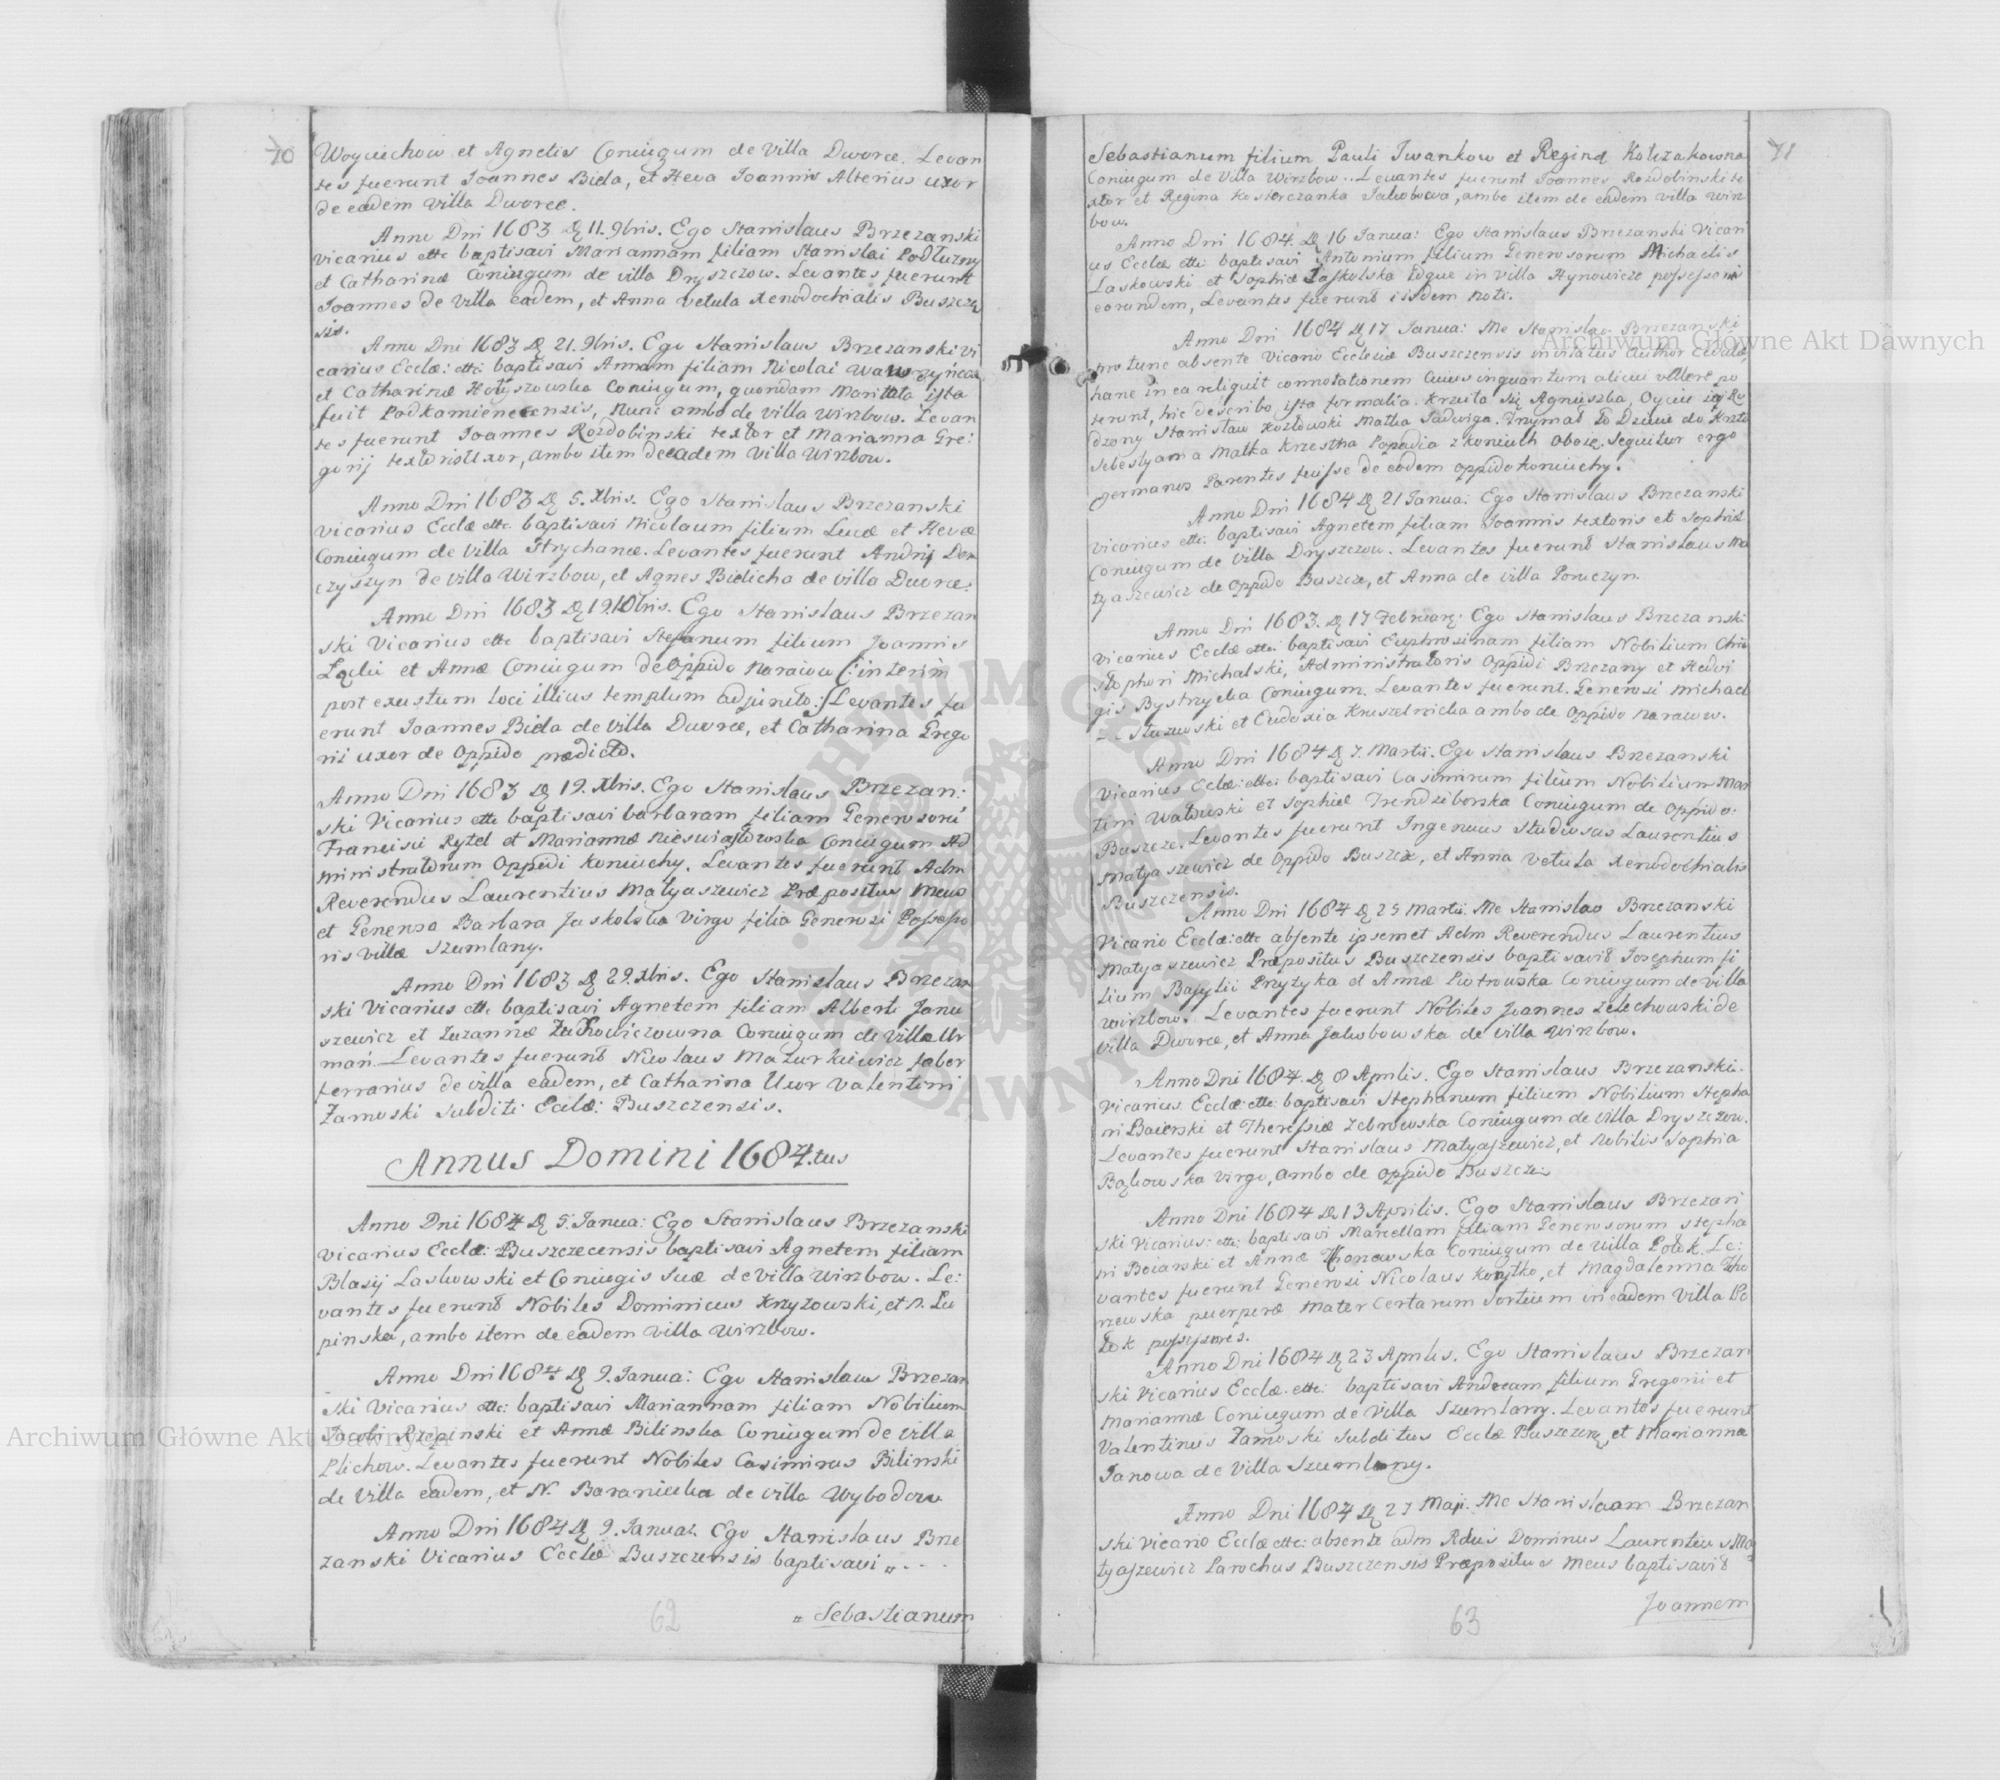 70
Woyciechow et Agnetis Coniugum de Villa Dworce. Levan
tes fuerunt Joannes Biela, et Heva Joannis Alterius uxor
de eadem Villa Dworce.
Anno Dni 1683 D 11. 9bris. Ego Stanislaus Brzezanski
vicarius ettc baptisavi Mariannam filiam Stanislai Podluzny
et Catharinæ Coniugum de villa Dryszczow. Levantes fuerunt
Joannes de Villa eadem, et Anna vetula Xenodochialis Buszcze
sis.
Anno Dni 1683 D 21. 9bris. Ego Stanislaus Brzezanski vi
carius Ecclæ: ettc: baptisavi Annam filiam Nicolai
et Catharinæ Coniugum, quondam Maritata ista
fuit Podkamienecensis, Nunc ambo de villa Wirzbow. Levan
tes fuerunt Joannes Rozdobinski textor et Marianna Gre:
gorij textoris Uxor, ambo item de eadem Villa Wirzbow.
Anno Dni 1683 D 5. Xbris. Ego Stanislaus Brzezanski
Vicarius Ecclæ ettc: baptisavi Nicolaum filium Lucæ et Hevæ
Coniugum de Villa Strychance. Levantes fuerunt Andrij Dem
czyszyn de Villa Wirzbow, et Agnes Bielicha de villa Dworce.
Anno Dni 1683 D 19. 10bris. Ego Stanislaus Brzezan
ski Vicarius ettc baptisavi Stefanum filium Joannis
et Annæ Coniugum de Oppido Naraiow (: interim
post exustum loci illius templum adjuncto :) Levantes fu
erunt Joannes Biela de Villa Dworce, et Catharina Grego
rii uxor de Oppido prædicto.
Anno Dni 1683 D 19. Xbris. Ego Stanislaus Brzezan:
ski Vicarius ettc baptisavi barbaram filiam Generosorū
Francisci Rytel et Mariannæ Coniugum Ad
ministratorum Oppidi Koniuchy. Levantes fuerunt Adm
Reverendus Laurentius Matyaszewicz Præpositus Meus
et Generosa Barbara Jaskolska Virgo filia Generosi Possesso
ris Villæ Szumlany.
Anno Dni 1683 D 29. Xbris. Ego Stanislaus Brzezan
ski Vicarius ettc. baptisavi Agnetem filiam Alberti Janu
szewicz et Zuzannæ Coniugum de Villa Ur
mań. Levantes fuerunt Nicolaus Mazurkiewicz faber
ferrarius de villa eadem, et Catharina Uxor Valentini
Zamoski Subditi Ecclæ: Buszczensis.
Annus Domini 1684.tus
Anno Dni 1684 D 5. Janua: Ego Stanislaus Brzezanski
Vicarius Ecclæ: Buszczecensis baptisavi Agnetem filiam
Blasij Laskowski et Coniugis Suæ de Villa Wirzbow. Le:
vantes fuerunt Nobiles Dominicus Krzyzowski, et N. Lu
pinska, ambo item de eadem Villa Wirzbow.
Anno Dni 1684 D 9. Janua: Ego Stanislaus Brzezan
ski Vicarius ettc: baptisavi Mariannam filiam Nobilium
Jacobi Rzepinski et Annæ Bilinska Coniugum de villa
Plichow. Levantes fuerunt Nobiles Casimirus Bilinski
de Villa eadem, et N. Baraniecka de villa Wybodow
Anno Dni 1684 D 9. Januar. Ego Stanislaus Brze
zanski Vicarius Ecclæ Buszczensis baptisavi
Sebastianum
62
71
Sebastianum filium Pauli Iwankow et Reginæ Kolczakowna
Coniugum de Villa Wirzbow. Levantes fuerunt Joannes Rozdobinski te
xtor et Regina Kostorczanka Jakubowa, ambo item de eadem villa Wirz
bow.
Anno Dni 1684. D 16 Janua: Ego Stanislaus Brzezanski Vicari
us Ecclæ ettc: baptisavi Antonium filium Generosorum Michaelis
Laskowski et Sophiæ Jaskolska Idque in Villa Hynowicze possessoris
eorundem, Levantes fuerunt iisdem noti.
Anno Dni 1684 D 17 Janua: Me Stanislao Brzezanski
pro tunc absente Vicario Ecclesiæ Buszczensis invitatus Author
hanc in ea reliquit connotationem Cuius inquantum alicui vallere po
terunt, hic describo ista formalia. Krzciła się Agnieszka, Oyciec iey Ro
dzony Stanisław Kozłowski Matka Jadwiga. Trzymał To Dziecie do Krztu
Sebestyan a Matka Krzestna Popadia z Koniuch Oboie. Sequitur ergo
germanos Parentes fuisse de eodem oppido Koniuchy.
Anno Dni 1684 D 21 Janua: Ego Stanislaus Brzezanski
Vicarius ettc: baptisavi Agnetem filiam Joannis textoris et Sophiæ
Coniugum de Villa Dryszczow. Levantes fuerunt Stanislaus Ma
tyaszewicz de Oppido Buszcze, et Anna de villa Poruczyn.
Anno Dni 1683. D 17 Februarij: Ego Stanislaus Brzezanski
Vicarius Ecclæ ettc: baptisavi Euphrosinam filiam Nobilium Chri
stophori Michalski, Administratoris Oppidi Brzezany et Hedvi
gis Bystrycka Coniugum. Levantes fuerunt. Generosi Michael
et Eudoxia Kruszelnicka ambo de Oppido Naraiow.
Anno Dni 1684 D 7. Martii. Ego Stanislaus Brzezanski
Vicarius Ecclæ: ettc: baptisavi Casimirum filium Nobilium Mar
tini et Sophiæ Trendziborska Coniugum de Oppido
Buszcze. Levantes fuerunt Ingenuus Studiosus Laurentius
Matyaszewicz de Oppido Buszcze, et Anna Vetula Xenodochialis
Buszczensis.
Anno Dni 1684 D 25 Martii. Me Stanislao Brzezanski
Vicario Ecclæ: ettc absente ipsemet Adm Reverendus Laurentius
Matyaszewicz Præpositus Buszczensis baptisavit Josephum fi
lium Basylii Przytyka et Annæ Piotrowska Coniugum de Villa
Wirzbow. Levantes fuerunt Nobiles Joannes Zelechowski de
Villa Dworce, et Anna Jakubowska de Villa Wirzbow.
Anno Dni 1684. D 8 Aprilis. Ego Stanislaus Brzezanski.
Vicarius Ecclæ: ettc: baptisavi Stephanum filium Nobilium Stepha
ni Baierski et Theressiæ Zebrowska Coniugum de Villa Dryszczow.
Levantes fuerunt Stanislaus Matyaszewicz, et Nobilis Sophia
Bąkowska Virgo, ambo de Oppido Buszcze
Anno Dni 1684 D 13 Aprilis. Ego Stanislaus Brzezan
ski Vicarius: ettc: baptisavi Marcellam filiam Generosorum Stepha
ni Boiarski et Annæ Coniugum de Villa Potok. Le:
vantes fuerunt Generosi Nicolaus et Magdalenna
puerperæ Mater Certarum Sortium in eadem Villa Po
tok possessores.
Anno Dni 1684 D 23 Aprilis. Ego Stanislaus Brzezan
ski Vicarius Ecclæ. ettc: baptisavi Andream filium Gregorii et
Mariannæ Coniugum de Villa Szumlany. Levantes fuerunt
Valentinus Zamoski Subditus Ecclæ Buszczen, et Marianna
Janowa de Villa Szumlany.
Anno Dni 1684 D 27 Maji. Me Stanislaam Brzezan
ski Vicario Ecclæ ettc: absente adm Rdus Dominus Laurentius Ma
tyaszewicz Parochus Buszczensis Præpositus meus baptisavit
Joannem
63
Archiwum Główne Akt Dawnych
Archiwum Główne Akt Dawnych
ARCHIWUM GŁÓWNE AKT DAWNYCH